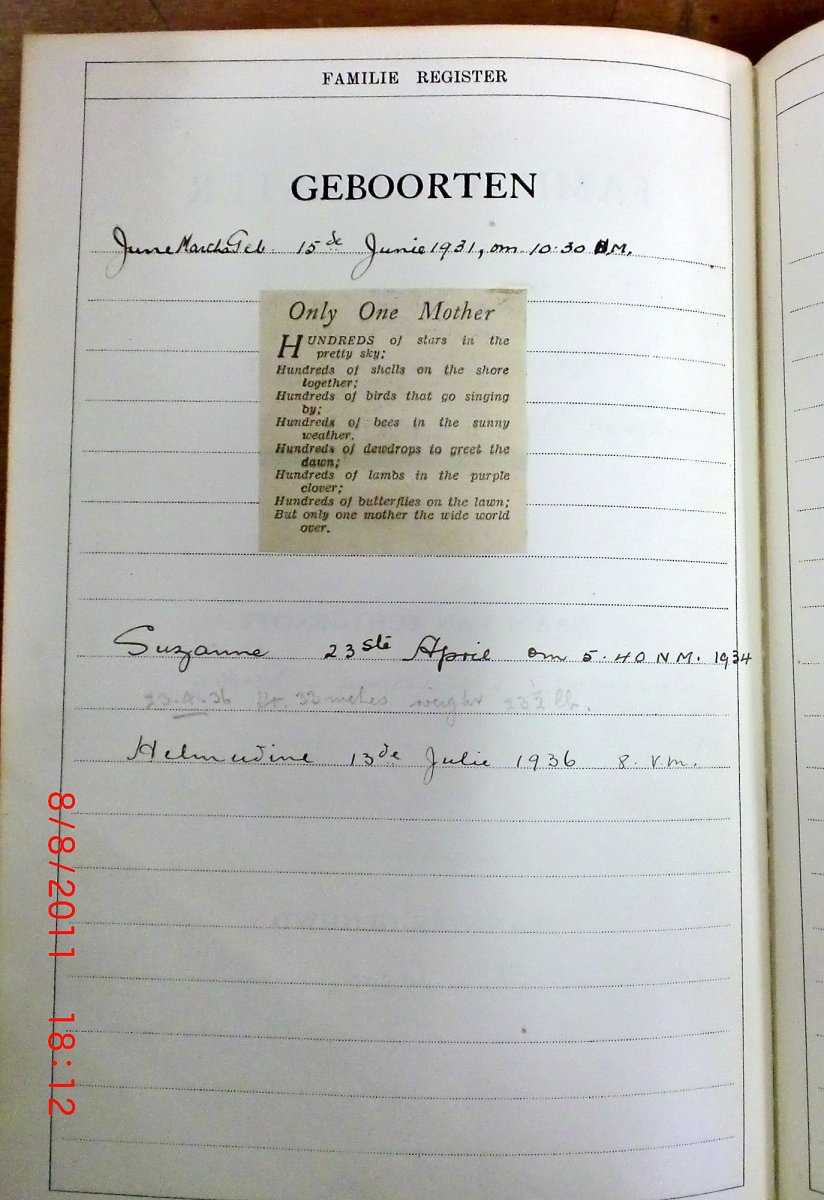 FAMILIE REGISTER
GEBOORTEN
June Martha Geb. 15de Junie 1931, om 10.30 .M.
Only One Mother
HUNDREDS of stars in the
pretty sky;
Hundreds of shells on the shore
together;
Hundreds of birds that go singing
by;
Hundreds of bees in the sunny
weather.
Hundreds of dewdrops to greet the
dawn;
Hundreds of lambs in the purple
clover;
Hundreds of butterflies on the lawn;
But only one mother the wide world
over.
Suzanne 23ste April om 5.40 N M. 1934
23.4.36 Ht. 33 inches weight 23½ lb.
13de Julie 1936 8. v.m.
8/8/2011 18:12